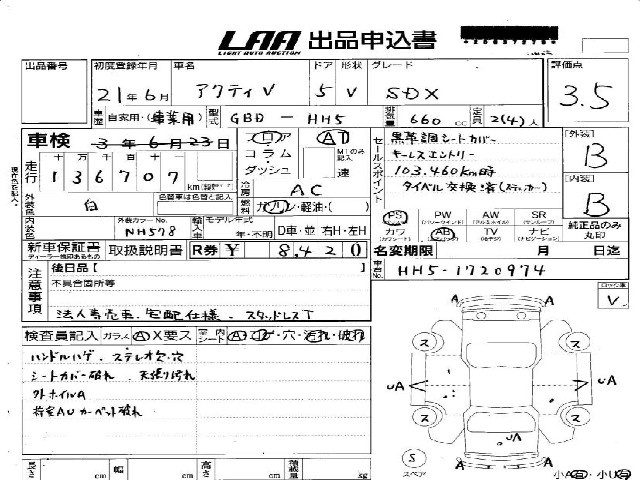 LAA 出品申込書
LIGHT AUTO AUCTION
出品番号 初度登録年月 車名 ドア 形状 グレード 評価点
21年6月 アクティV 5 V SDX 3.5
車歴 自家用・(事業用) 型式 GBD - HH5 排気量 660cc 定員 2(4)人
車検 3年6月23日
走行 136707 km
コラム・ダッシュ AT 速
冷房 AC
燃料 ガソリン・軽油・( )
外装色 白 色替車は色替と記入
内装色 外装カラーNo. NH578 輸入車 モデル年式 年・不明 D車・並 右H・左H
セールスポイント
黒革調シートカバー
キーレスエントリー
103,460km時
タイベル交換済(ステッカー)
[外装] B
[内装] B
PS PW AW SR
カワ AB TV ナビ
純正品のみ丸印
新車保証書 取扱説明書 R券 ¥ 8,420 名変期限 月 日迄
車台No. HH5-1720974
注意事項
後日品 [ ]
不具合箇所等
法人売宅車、宅配仕様、スタッドレスT
検査員記入 ガラス A X要ス 室内 シート A コゲ・穴・汚れ・破れ
ハンドルハゲ、ステレオ欠・穴
シートカバー破れ 天張り汚れ
外ホイルA
荷室AUカーペット破れ
長さ cm 幅 cm 高さ cm 積載量 kg
A A
ス ス
UA UA
ス ス
UA
A A
S スペア
小A有・小U有